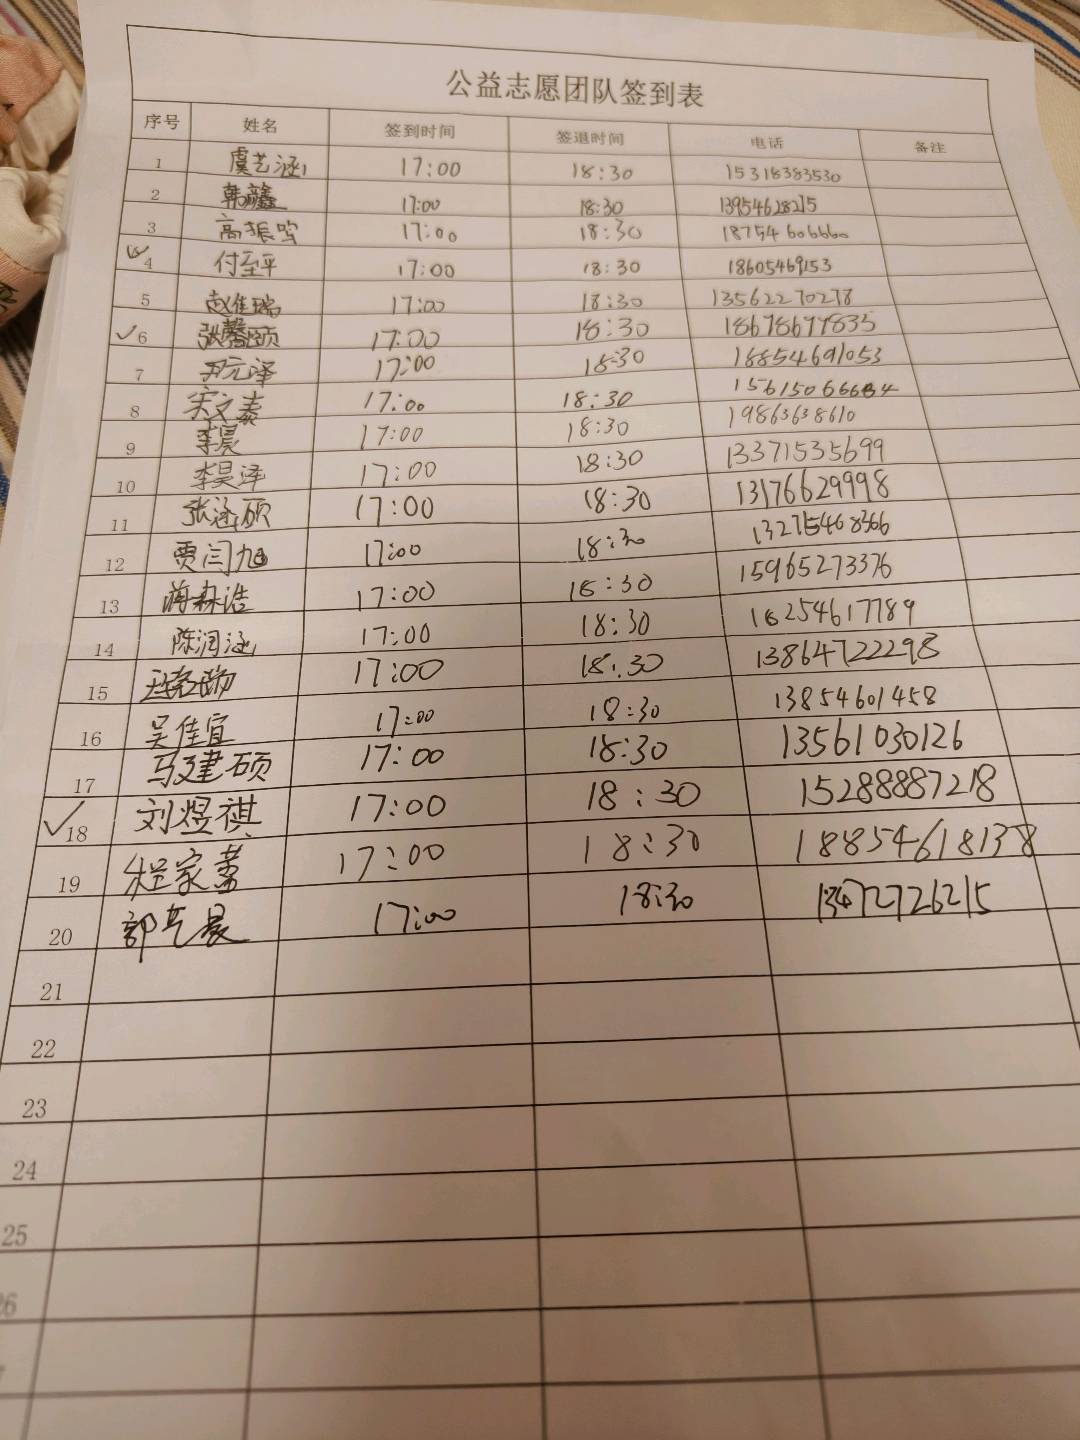 公益志愿团队签到表
序号 姓名 签到时间 签退时间 电话 备注
1 虞艺涵 17:00 18:30 15318383530
2 韩鑫 17:00 18:30 13954628215
3 高振鸣 17:00 18:30 18754606660
4 付至平 17:00 18:30 18605469153
5 赵佳瑞 17:00 18:30 13562270278
6 张馨颐 17:00 18:30 18678699835
7 尹元泽 17:00 18:30 18854691053
8 宋文泰 17:00 18:30
9 李昊 17:00 18:30 19863638610
10 李昊泽 17:00 18:30 13371535699
11 张涵硕 17:00 18:30 13176629998
12 贾闫旭 17:00 18:30
13 蒋森浩 17:00 18:30 15965273376
14 陈润涵 17:00 18:30 18254617789
15 17:00 18:30 13864722298
16 吴佳宜 17:00 18:30 13854601458
17 马建硕 17:00 18:30 13561030126
18 刘煜祺 17:00 18:30 15288887218
19 程家萧 17:00 18:30 18854618138
20 郭艺晨 17:00 18:30 13472726215
21
22
23
24
25
26